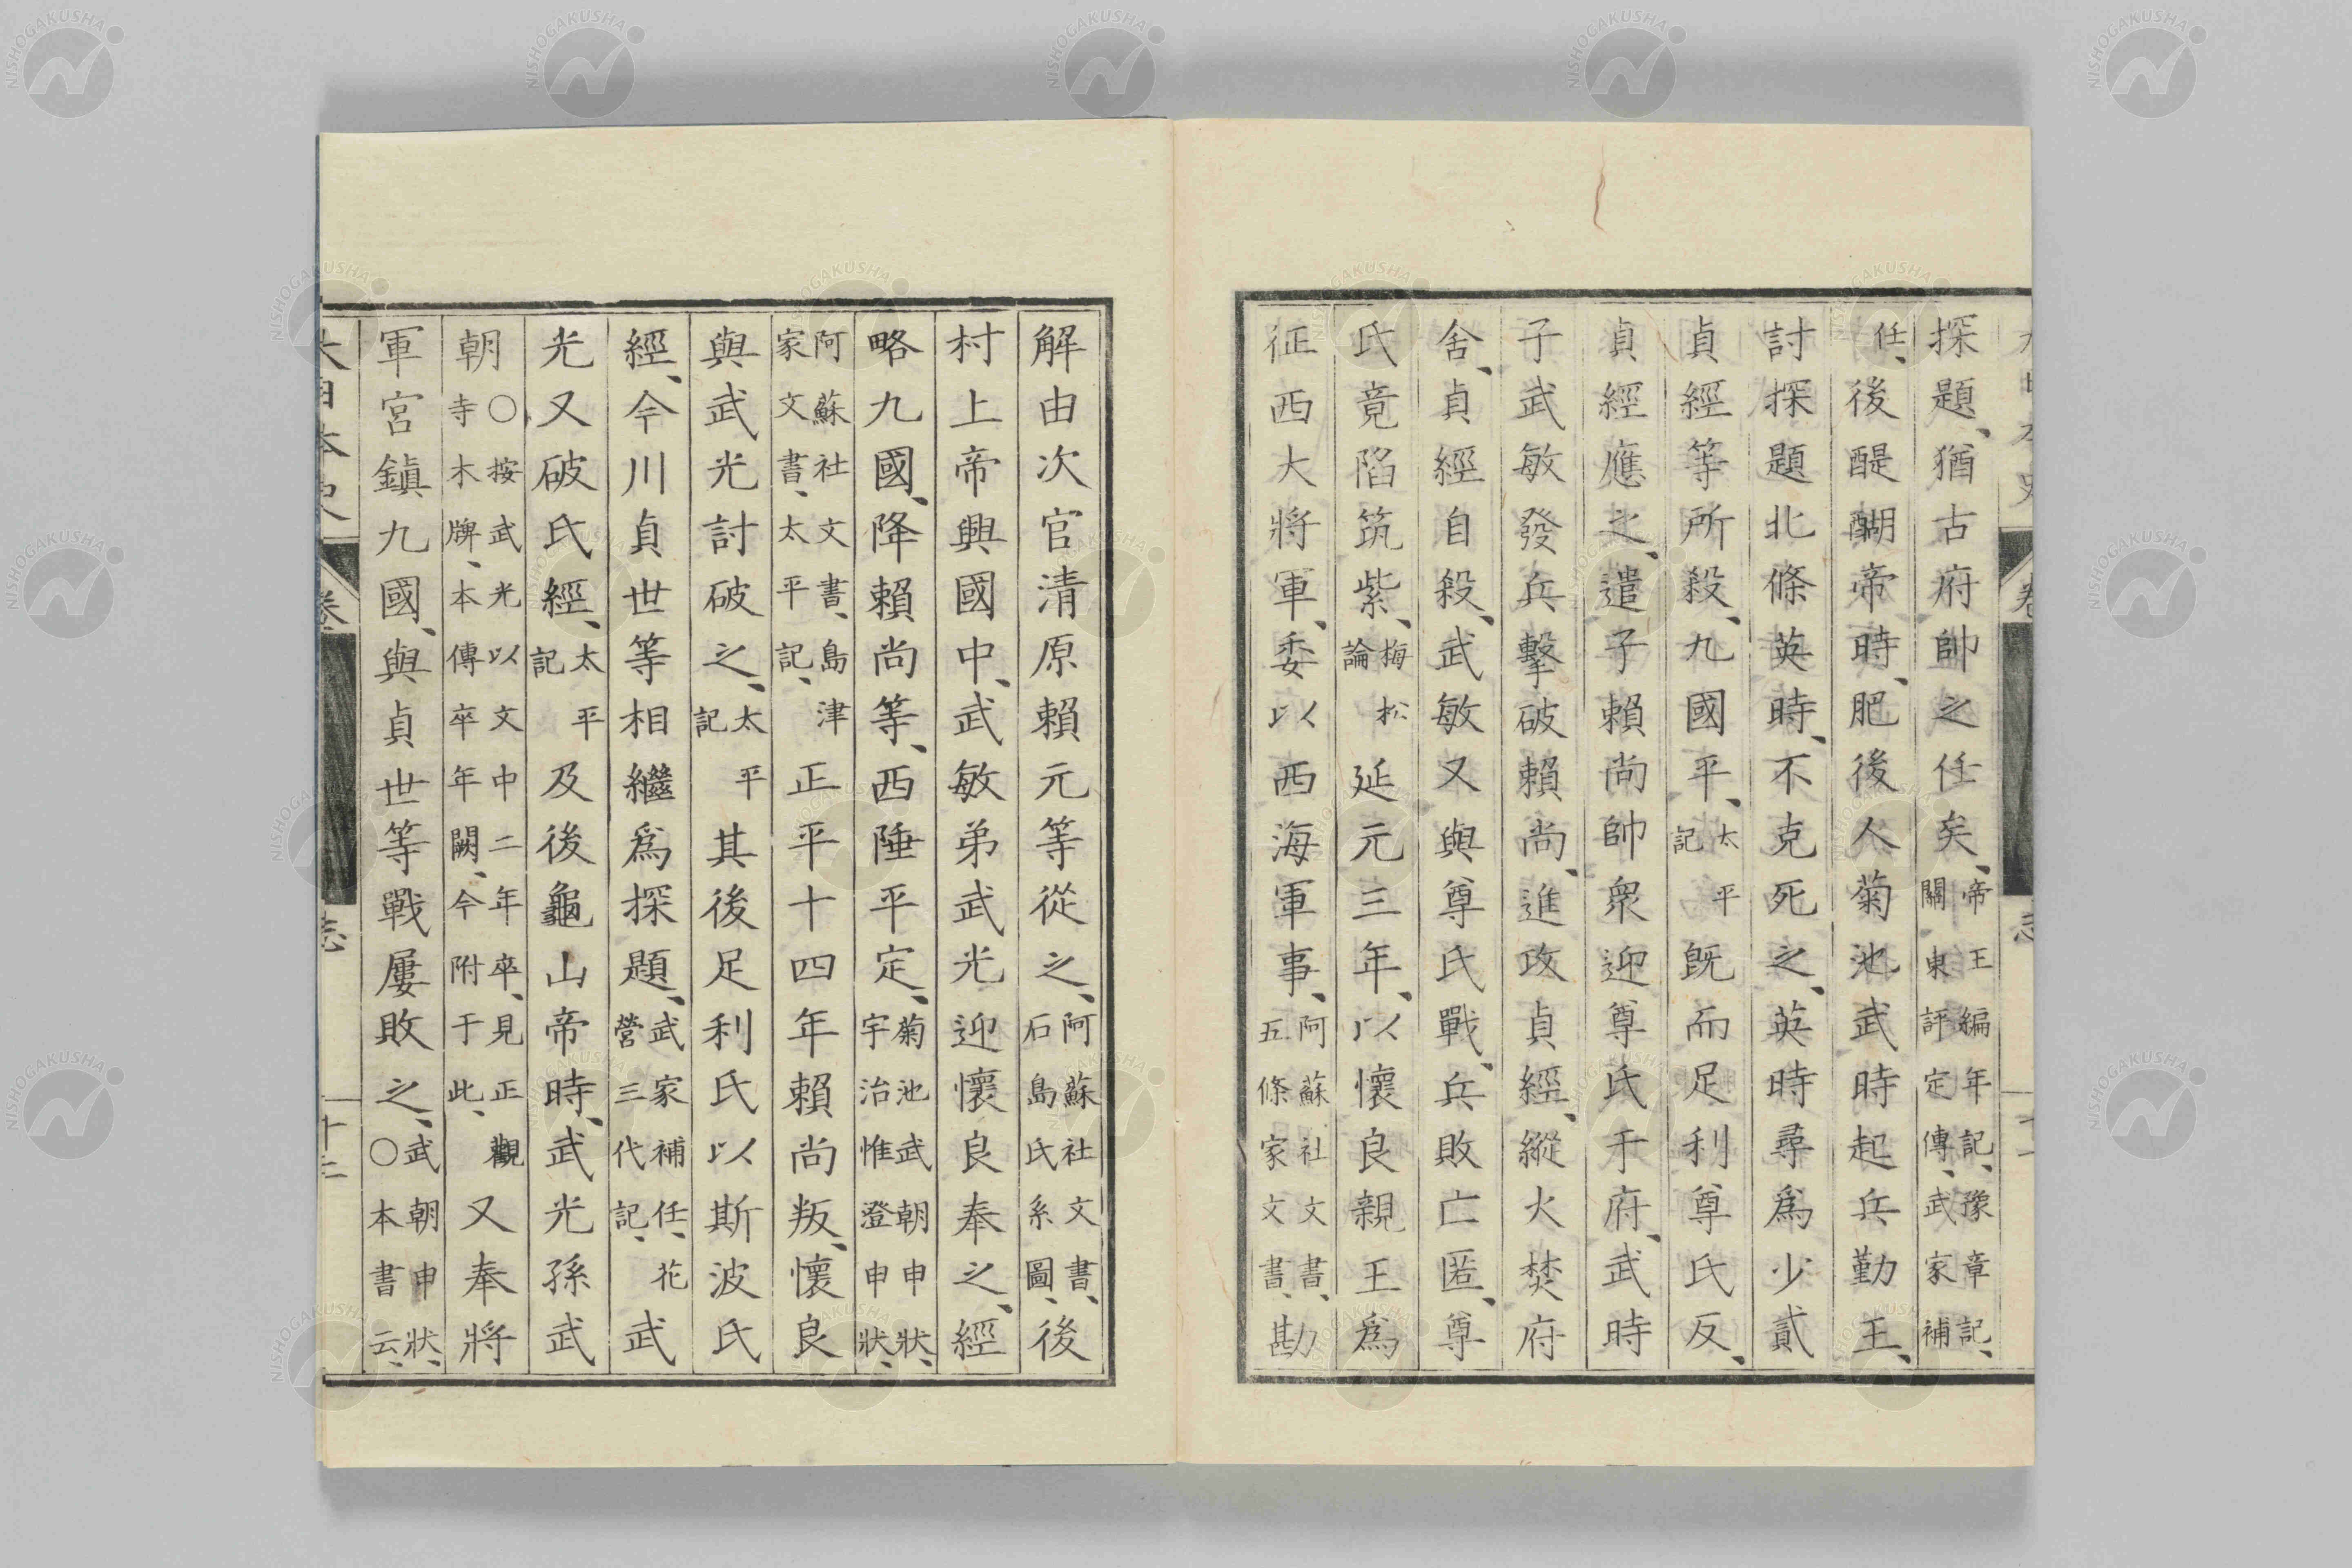 探題、猶古府帥之任矣、帝王編年記、豫章記、關東評定傳、武家補
任、後醍醐帝時、肥後人菊池武時起兵勤王、
討探題北條英時、不克死之、英時尋爲少貳
貞經等所殺、九國平、太平記既而足利尊氏反、
貞經應之、遣子賴尚帥衆迎尊氏于府、武時
子武敏發兵擊破賴尚、進攻貞經、縱火焚府
舍、貞經自殺、武敏又與尊氏戰、兵敗亡匿、尊
氏竟陷筑紫、梅松論延元三年、以懷良親王爲
征西大將軍、委以西海軍事、阿蘇社文書、五條家文書、勘
解由次官清原賴元等從之、阿蘇社文書、石島氏系圖、後
村上帝興國中、武敏弟武光迎懷良奉之、經
略九國、降賴尚等、西陲平定、菊池武朝申狀、宇治惟澄申狀、
阿蘇社文書、島津家文書、太平記、正平十四年賴尚叛、懷良
與武光討破之、太平記其後足利氏以斯波氏
經、今川貞世等相繼爲探題、武家補任、花營三代記、武
光又破氏經、太平記及後龜山帝時、武光孫武
朝○按武光以文中二年卒、見正觀寺木牌、本傳卒年闕、今附于此、又奉將
軍宮鎮九國、與貞世等戰屢敗之、武朝申狀、○本書云、
大日本史 卷 志 十二
NISHOGAKUSHA